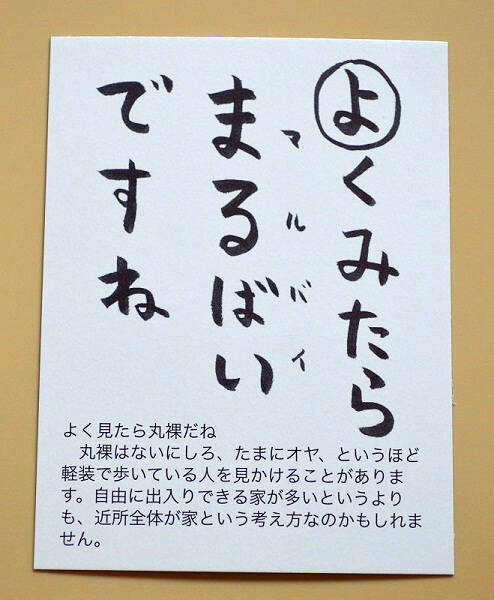 よくみたら
まるばい
マルバイ
ですね
よく見たら丸裸だね
　丸裸はないにしろ、たまにオヤ、というほど
軽装で歩いている人を見かけることがありま
す。自由に出入りできる家が多いというより
も、近所全体が家という考え方なのかもしれま
せん。